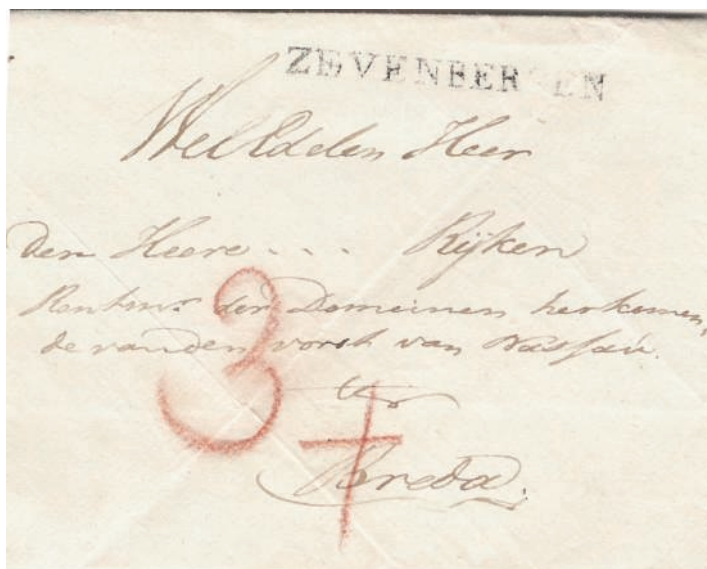 ZEVENBERGEN
WelEdelen Heer
den Heere . . . Rijken
Rentmr der Domeinen herkomen,
de van den vorst van Nassau.
ter
Breda.
3